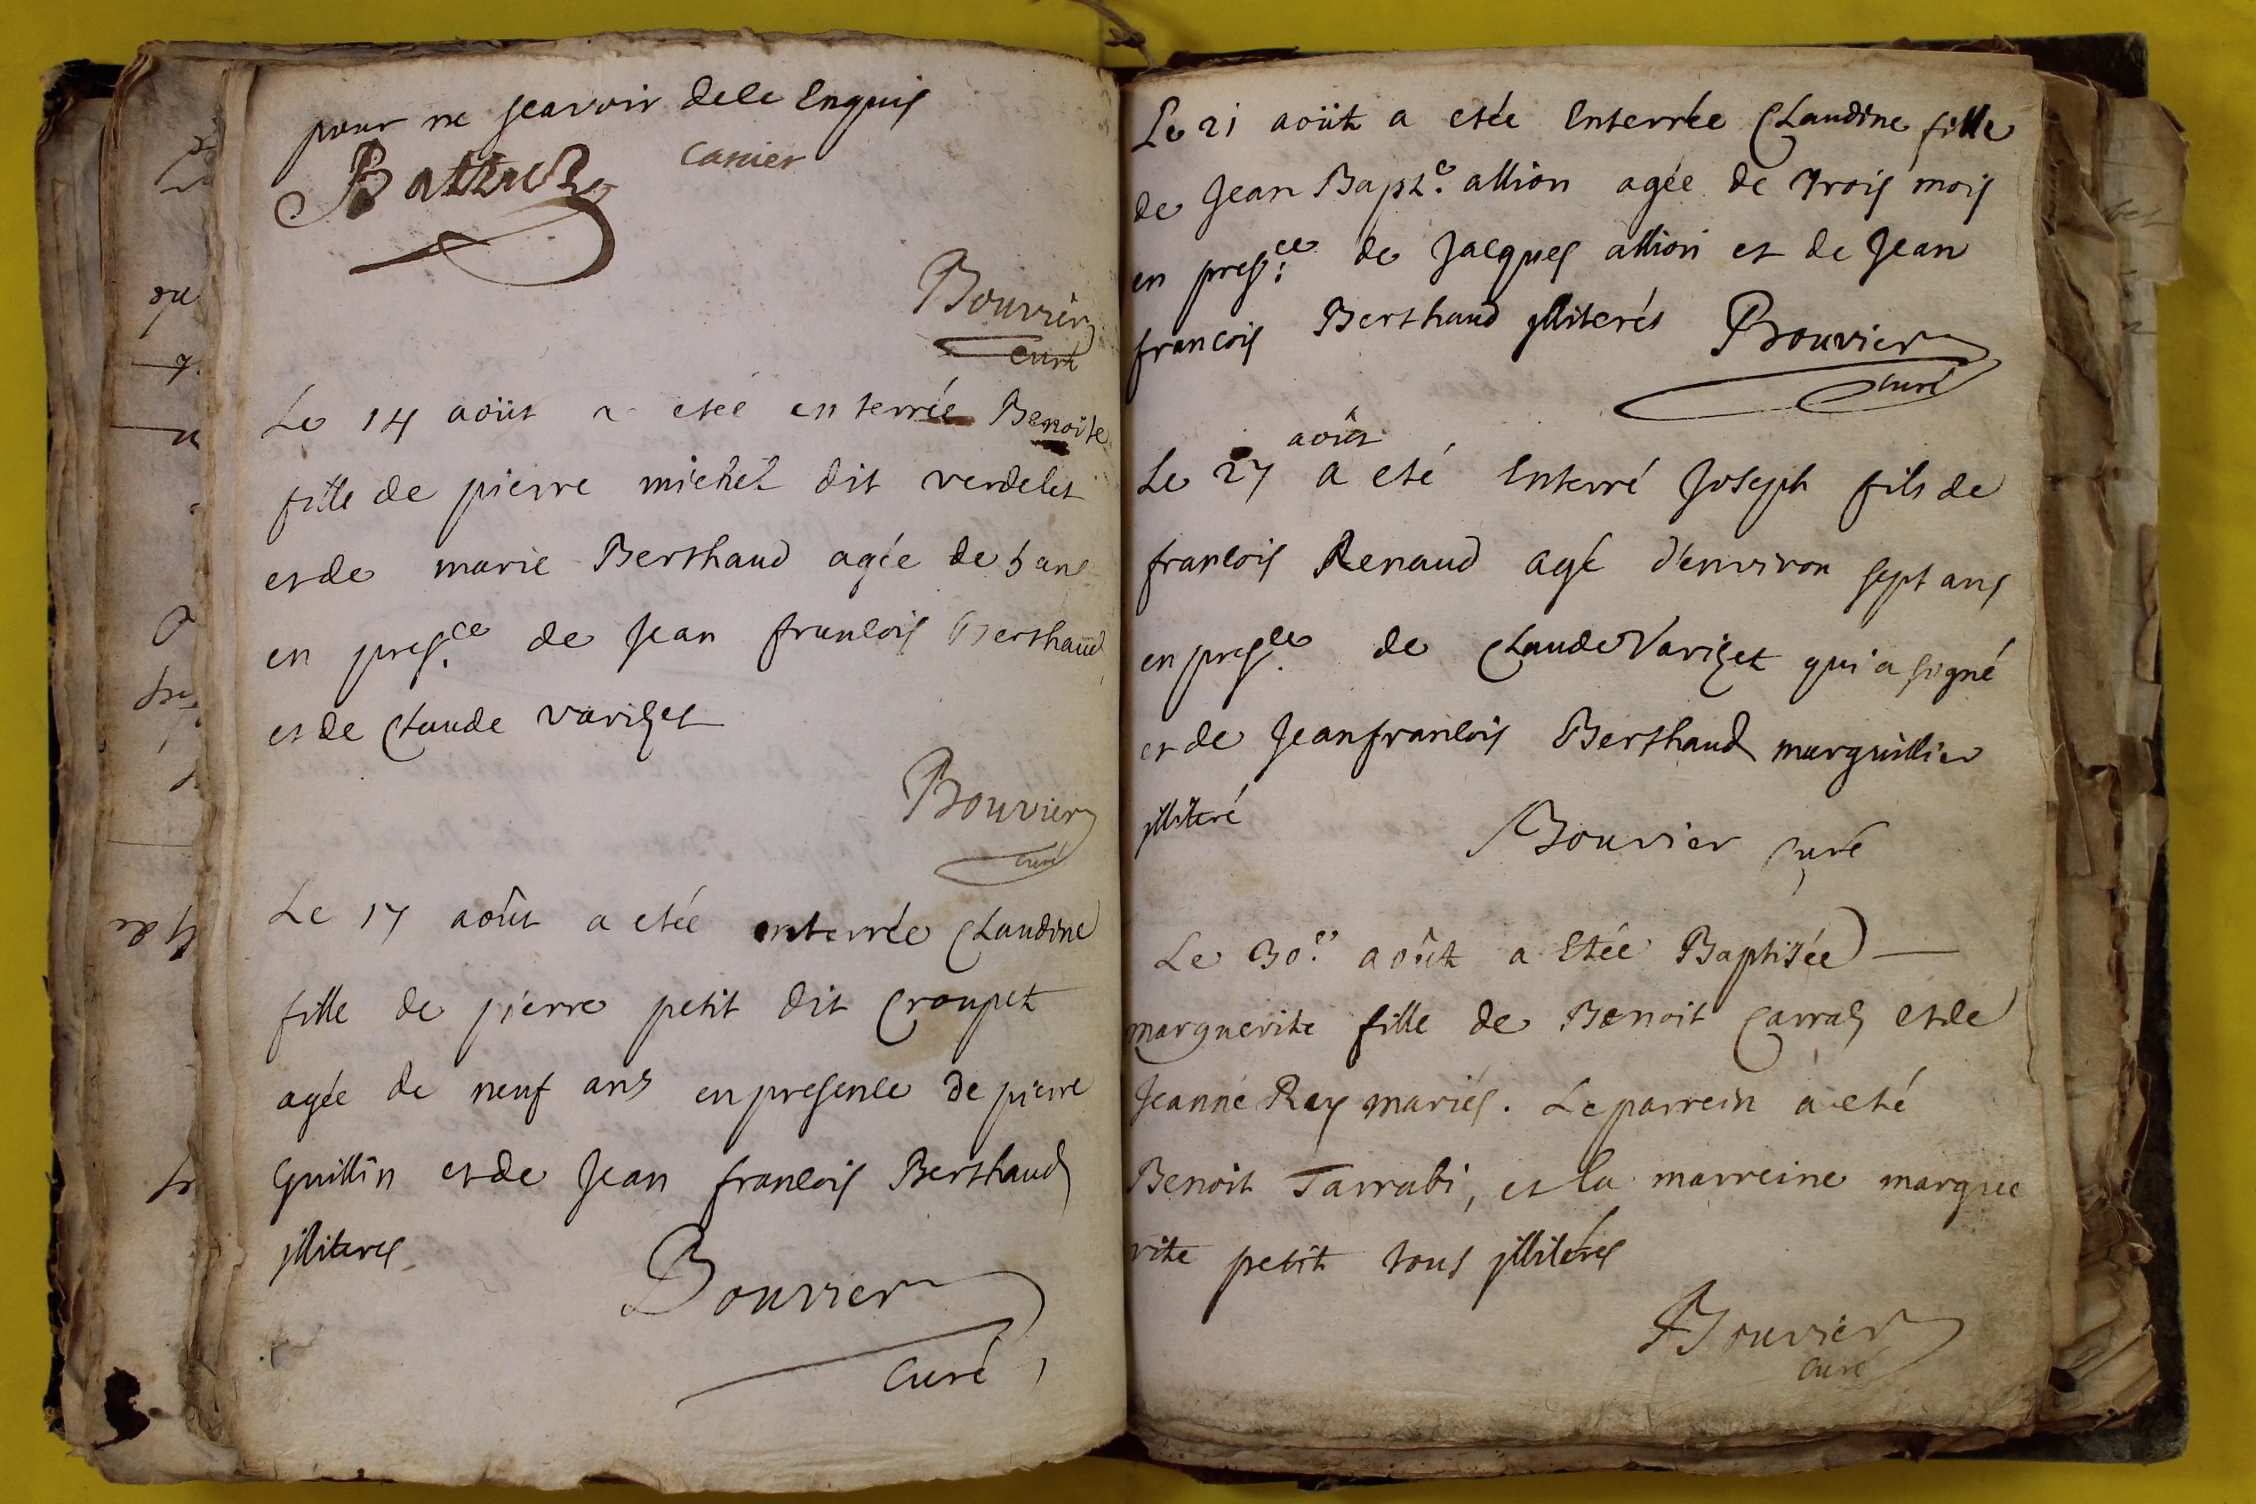 pour ne scavoir dece Enquis
Canier
Bouvier
curé
Le 14 août a eteé enterrée Benoîte
fille de pierre michel dit verdelet
et de marie Berthaud agée de 5 ans
en presce. de Jean francois Berthaud
et de Claude Varizet
Bouvier
curé
Le 17 août a etée enterrée Claudine
fille de pierre petit dit Croupet
agée de neuf ans en presence de pierre
Guillin et de Jean francois Berthaud
jlliteres
Bouvier
Curé
Le 21 août a etée Enterrée Claudine fille
de Jean Bapte. allion agée de trois mois
en presce: de Jacques allion et de Jean
francois Berthaud jlliterés Bouvier
curé
août
Le 27 a eté Enterré Joseph fils de
francois Renaud agé d'environ sept ans
en presce. de Claude Varizet qui a signé
et de Jean francois Berthaud marguillier
jlliteré
Bouvier curé
Le 30e. août a Etée Baptisée —
marguerite fille de Benoit Carraz et de
Jeanne Rey mariés. Le parrein a eté
Benoit Tarrabi, et la marreine margue
rite petit tous jlliterés
Bouvier
curé